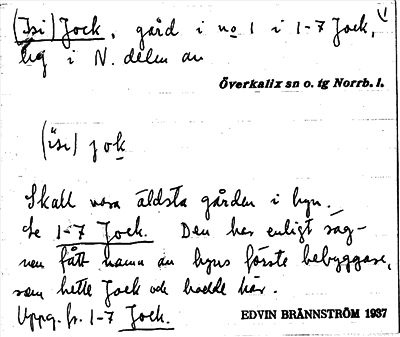 (Isi) Jock, gård i no 1 i 1-7 Jock,
lig i N. delen av
Överkalix sn o. tg Norrb. l.
(ìsi) jok
Skall vara äldsta gården i byn.
Se 1-7 Jock. Den har enligt säg-
nen fått namn av byns förste bebyggare,
som hette Jock och bodde här.
Uppg. fr. 1-7 Jock.
EDVIN BRÄNNSTRÖM 1937